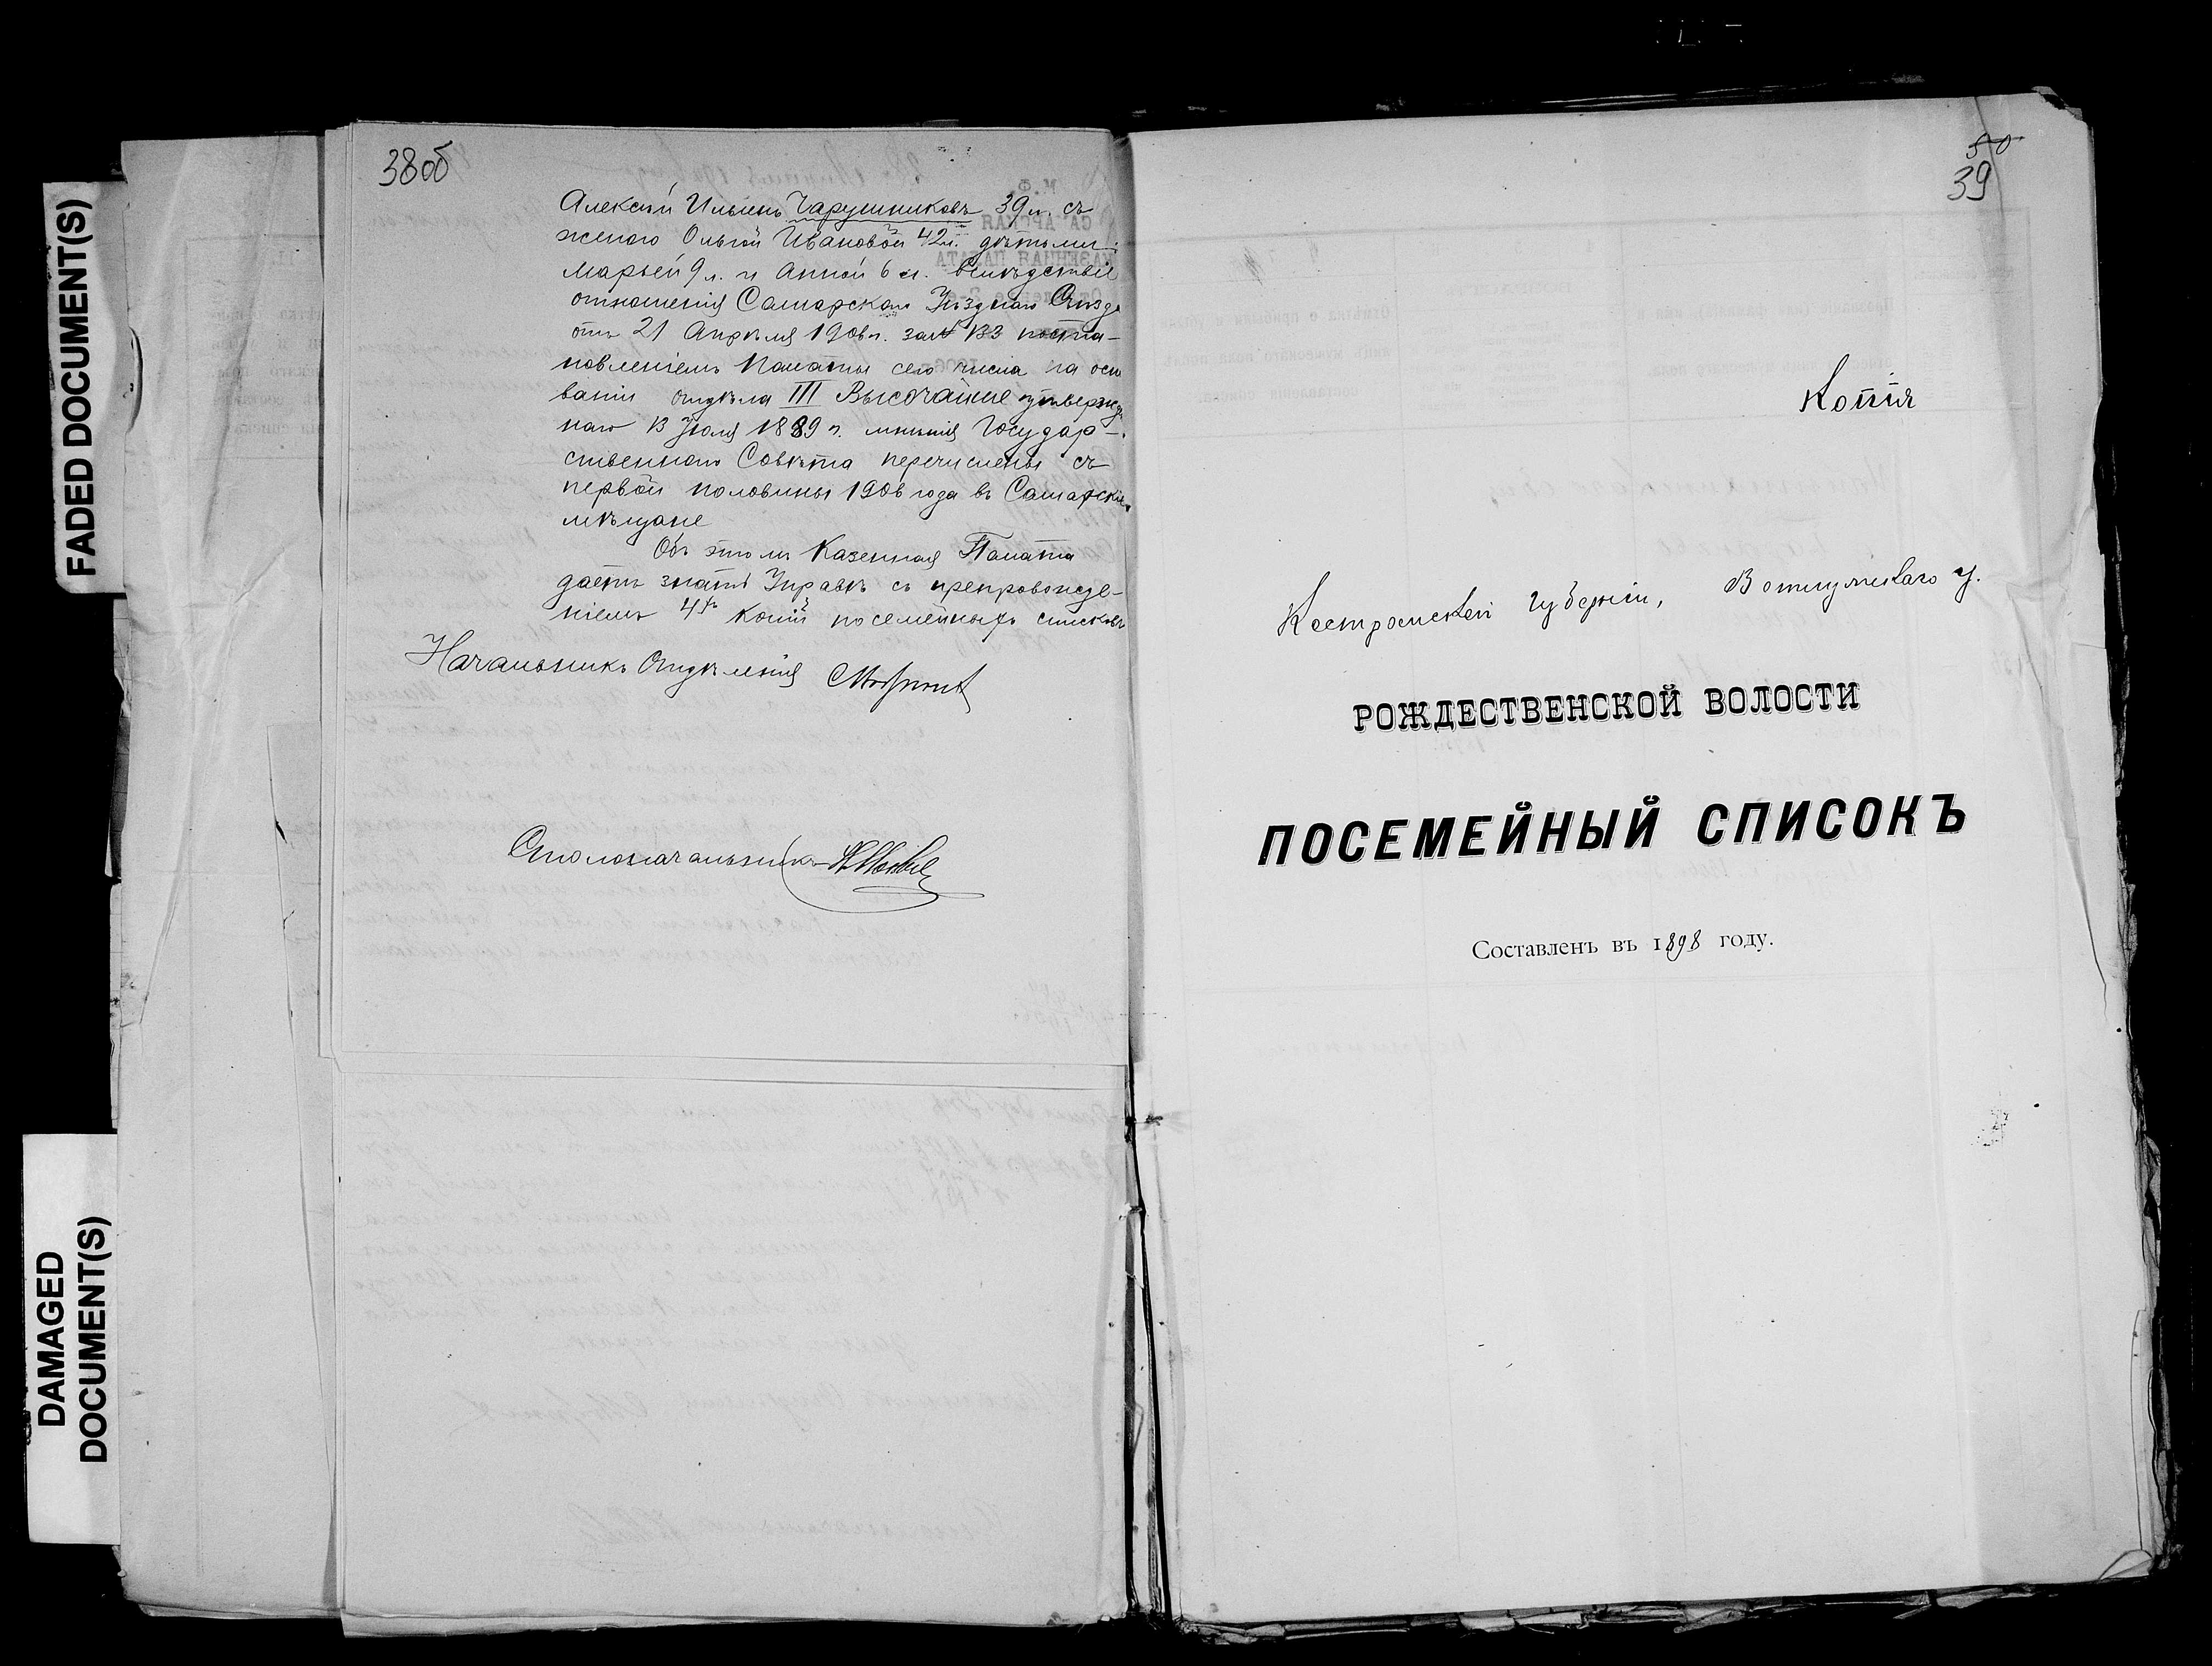 FADED DOCUMENT(S)
DAMAGED
DOCUMENT(S)
38об
Алексѣй Ильинъ Чарушниковъ 39 л. съ
женою Ольгой Ивановой 42 л. дѣтьми:
Марьей 9 л. и Анной 6 л. вслѣдствіе
отношенія Самарскаго Уѣзднаго Съѣзда
отъ 21 Апрѣля 1906 г. за № 133 поста-
новленіемъ Палаты сего числа на осно
ваніи отдѣла III Высочайше утвержде
наго 13 Іюля 1889 г. мнѣнія Государ-
ственнаго Совѣта перечислены съ
первой половины 1906 года въ Самарскіе
мѣщане
Объ этомъ Казенная Палата
даетъ знать Управѣ съ препровожде-
ніемъ 4хъ копій посемейныхъ списковъ
Начальникъ Отдѣленія
Столоначальникъ
50
39
Копія
Костромской губерніи, Ветлужскаго у.
РОЖДЕСТВЕНСКОЙ ВОЛОСТИ
ПОСЕМЕЙНЫЙ СПИСОКЪ
Составленъ въ 1898 году.